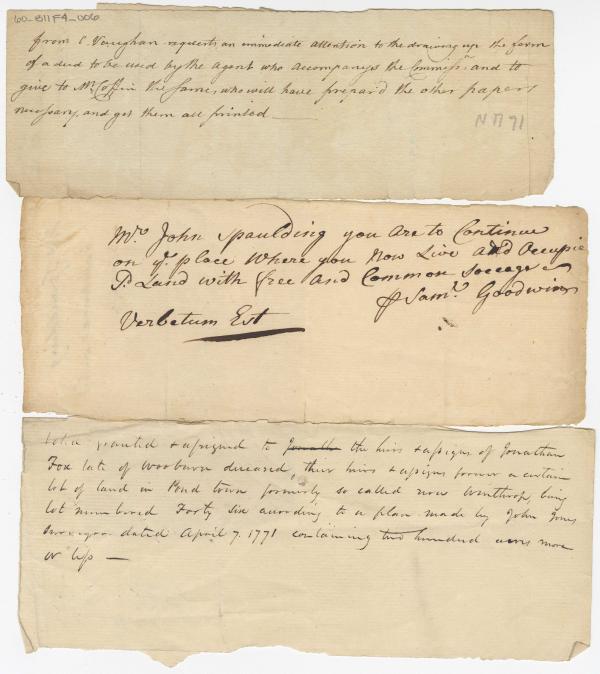 60-B11F4-006
from C. Vaughan requests an immediate attention to the drawing up the form
of a deed to be used by the agent who accompanys the Commissrs. and to
give to Mr. Coffin the same, who will have prepard the other papers
necessary, and get them all printed —
N 1771
Mr. John Spaulding you are to Continue
on ye. place Where you Now Live and Occupie
Sd. Land with free and Common Soccage
Saml. Goodwin
Verbetum Est
voted granted & assigned to Jonatha the heirs & assigns of Jonathan
Fox late of Wooburn deceased, their heirs & assigns forever a certain
lot of land in Pond town formerly so called now Winthrop, being
lot numbered Forty Six according to a plan made by John Jones
Surveyor dated April 7. 1771 containing two hundred acres more
or less —